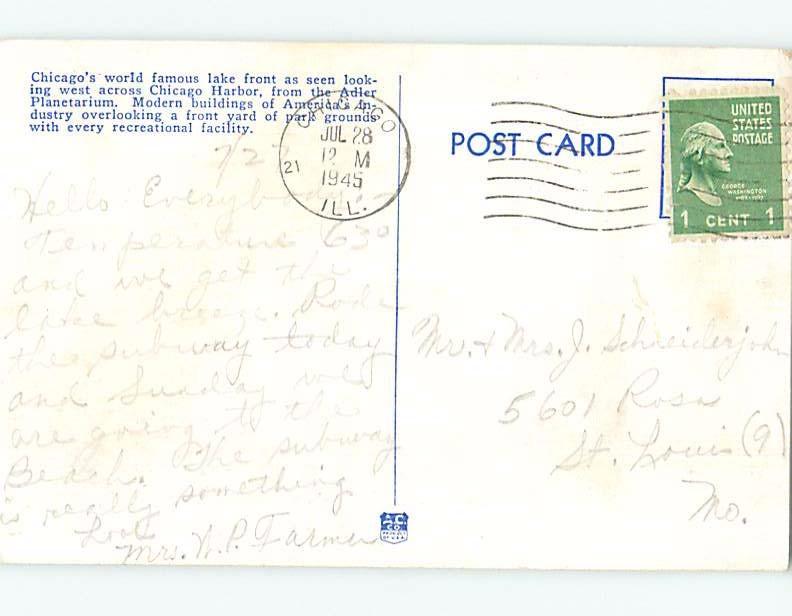 Chicago's world famous lake front as seen look-
ing west across Chicago Harbor, from the Adler
Planetarium. Modern buildings of America's in-
dustry overlooking a front yard of park grounds
with every recreational facility.
CHICAGO
JUL 28
12 M
1945
21
ILL.
POST CARD
UNITED
STATES
POSTAGE
GEORGE
WASHINGTON
1 CENT 1
7/27
Hello Everybody:-
Temperature 63°
and we get the
lake breeze. Rode
the subway today
and Sunday we
are going to the
Beach. The subway
is really something
Mrs. W. P. Farmer
Mr. & Mrs. J. Schneiderjohn
5601 Rosa
St. Louis (9)
Mo.
A.C.
CO.